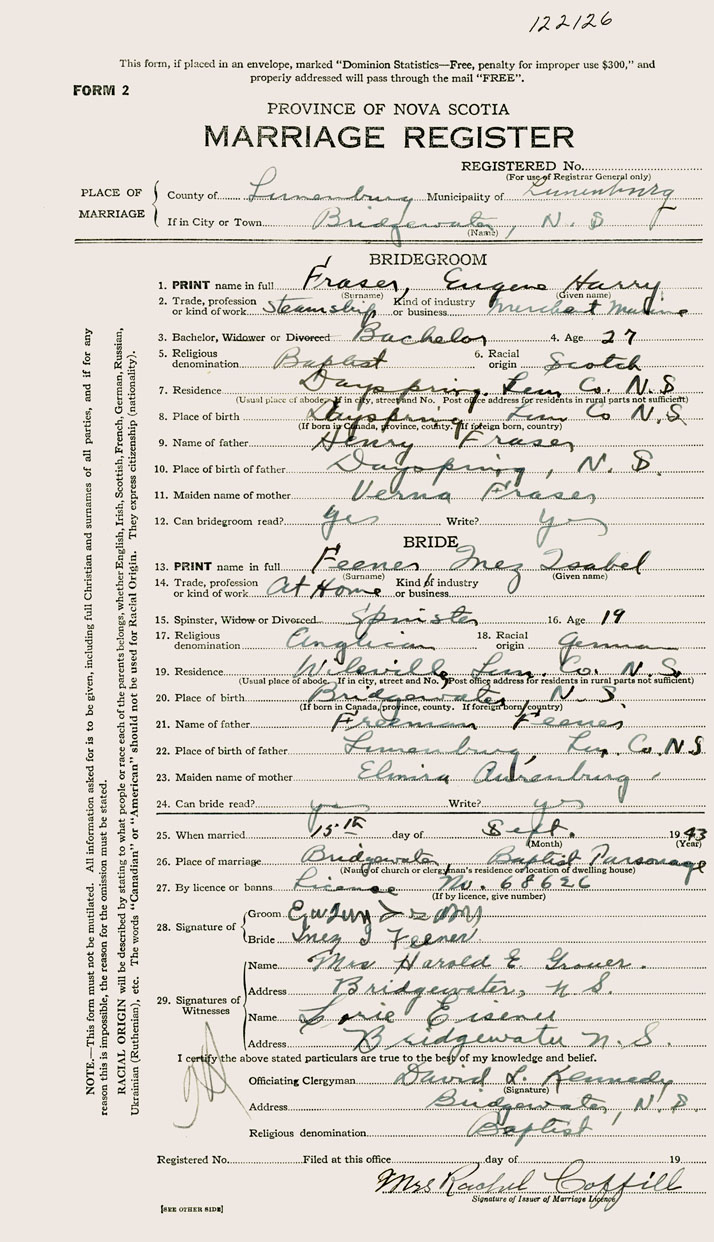 122126
This form, if placed in an envelope, marked “Dominion Statistics—Free, penalty for improper use $300,” and
properly addressed will pass through the mail “FREE”.
FORM 2
PROVINCE OF NOVA SCOTIA
MARRIAGE REGISTER
REGISTERED No.
(For use of Registrar General only)
PLACE OF MARRIAGE
County of Lunenburg Municipality of Lunenburg
If in City or Town Bridgewater, N.S
(Name)
BRIDEGROOM
1. PRINT name in full Fraser, Eugene Harry
(Surname) (Given name)
2. Trade, profession or kind of work Steamship Kind of industry or business Merchant Marine
3. Bachelor, Widower or Divorced Bachelor 4. Age 27
5. Religious denomination Baptist 6. Racial origin Scotch
7. Residence Dayspring, Lun Co. N.S
(Usual place of abode. If in city, street and No. Post office address for residents in rural parts not sufficient)
8. Place of birth Dayspring Lun Co N.S
(If born in Canada, province, county. If foreign born, country)
9. Name of father Henry Fraser
10. Place of birth of father Dayspring, N.S.
11. Maiden name of mother Verna Fraser
12. Can bridegroom read? yes Write? yes
BRIDE
13. PRINT name in full Feener Inez Isabel
(Surname) (Given name)
14. Trade, profession or kind of work At Home Kind of industry or business
15. Spinster, Widow or Divorced Spinster 16. Age 19
17. Religious denomination Anglican 18. Racial origin German
19. Residence Wileville Lun. Co. N.S
(Usual place of abode. If in city, street and No. Post office address for residents in rural parts not sufficient)
20. Place of birth Bridgewater N.S.
(If born in Canada, province, county. If foreign born, country)
21. Name of father Freeman Feener
22. Place of birth of father Lunenburg, Lun. Co. N.S
23. Maiden name of mother Elmira
24. Can bride read? yes Write? yes
25. When married 15th day of Sept. 1943
(Month) (Year)
26. Place of marriage Bridgewater Baptist Parsonage
(Name of church or clergyman’s residence or location of dwelling house)
27. By licence or banns License No. 68626
(If by licence, give number)
28. Signature of
Groom
Bride Inez I Feener
29. Signatures of Witnesses
Name Mrs Harold E.
Address Bridgewater, N S.
Name Eisener
Address Bridgewater N.S.
I certify the above stated particulars are true to the best of my knowledge and belief.
Officiating Clergyman David L. Kennedy
(Signature)
Address Bridgewater, N.S.
Religious denomination Baptist
Registered No. Filed at this office day of 19
Mrs Rachel Coffill
Signature of Issuer of Marriage Licence
[SEE OTHER SIDE]
NOTE.—This form must not be mutilated. All information asked for is to be given, including full Christian and surnames of all parties, and if for any
reason this is impossible, the reason for the omission must be stated.
RACIAL ORIGIN will be described by stating to what people or race each of the parents belongs, whether English, Irish, Scottish, French, German, Russian,
Ukrainian (Ruthenian), etc. The words “Canadian” or “American” should not be used for Racial Origin. They express citizenship (nationality).